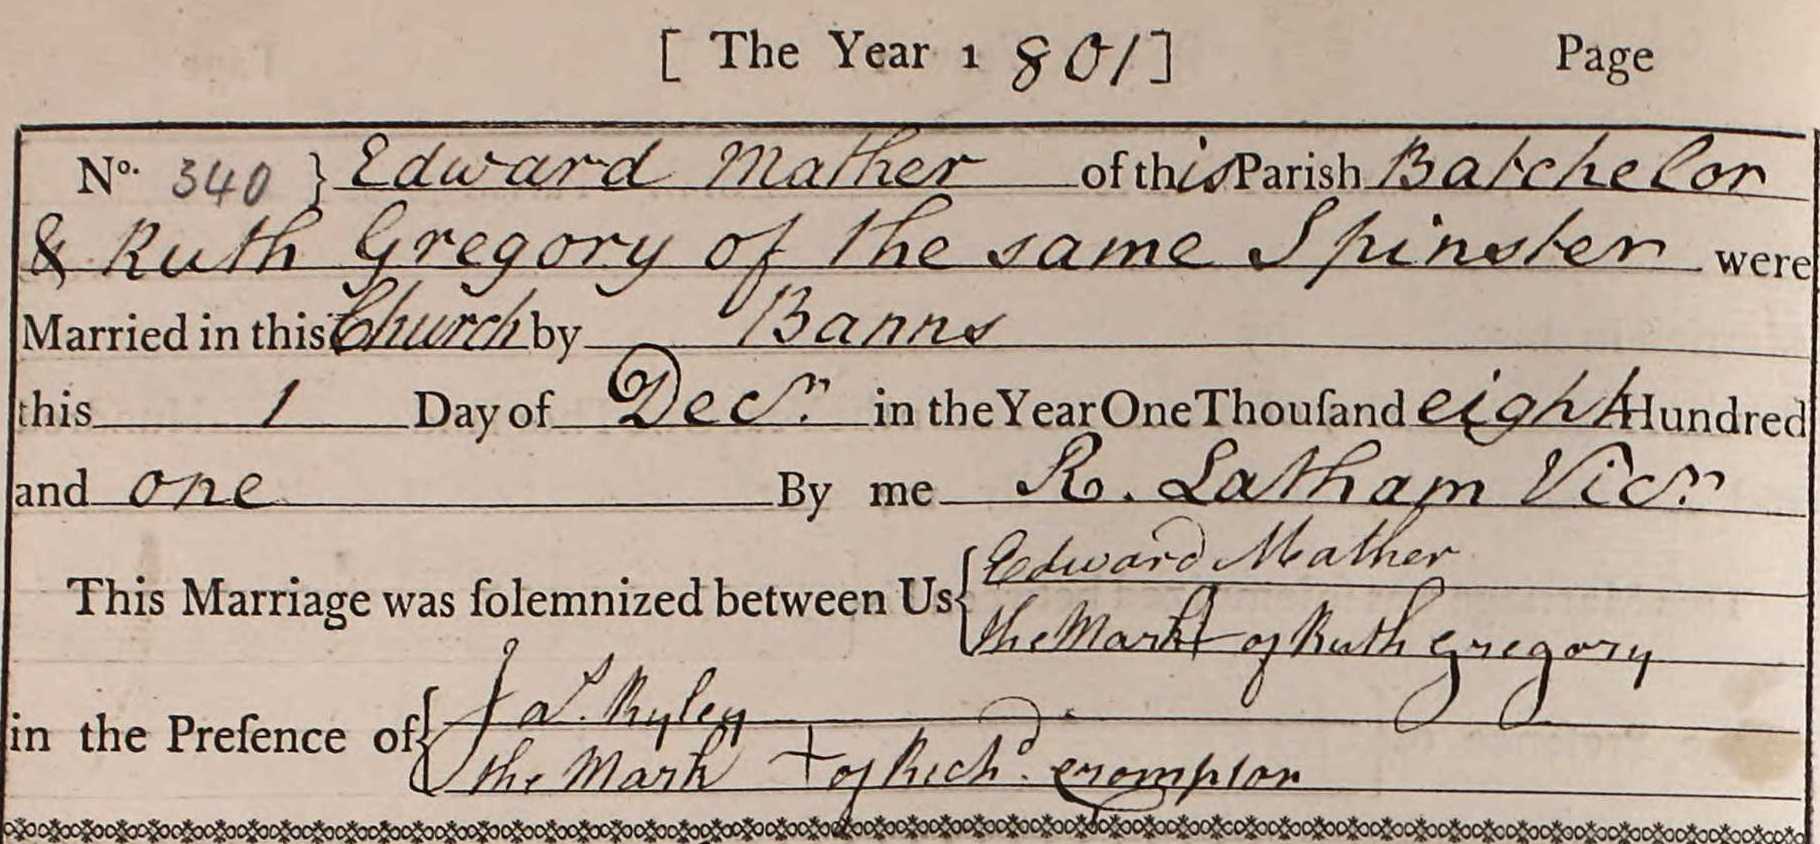 [ The Year 1801 ] Page
No. 340 } Edward Mather of this Parish Batchelor
& Ruth Gregory of the same Spinster were
Married in this Church by Banns
this 1 Day of Decr. in the Year One Thouſand eight Hundred
and one By me R. Latham Vicr.
This Marriage was ſolemnized between Us { Edward Mather
the Mark + of Ruth Gregory
in the Preſence of { Jas. Ryley
the Mark + of Richd. Crompton